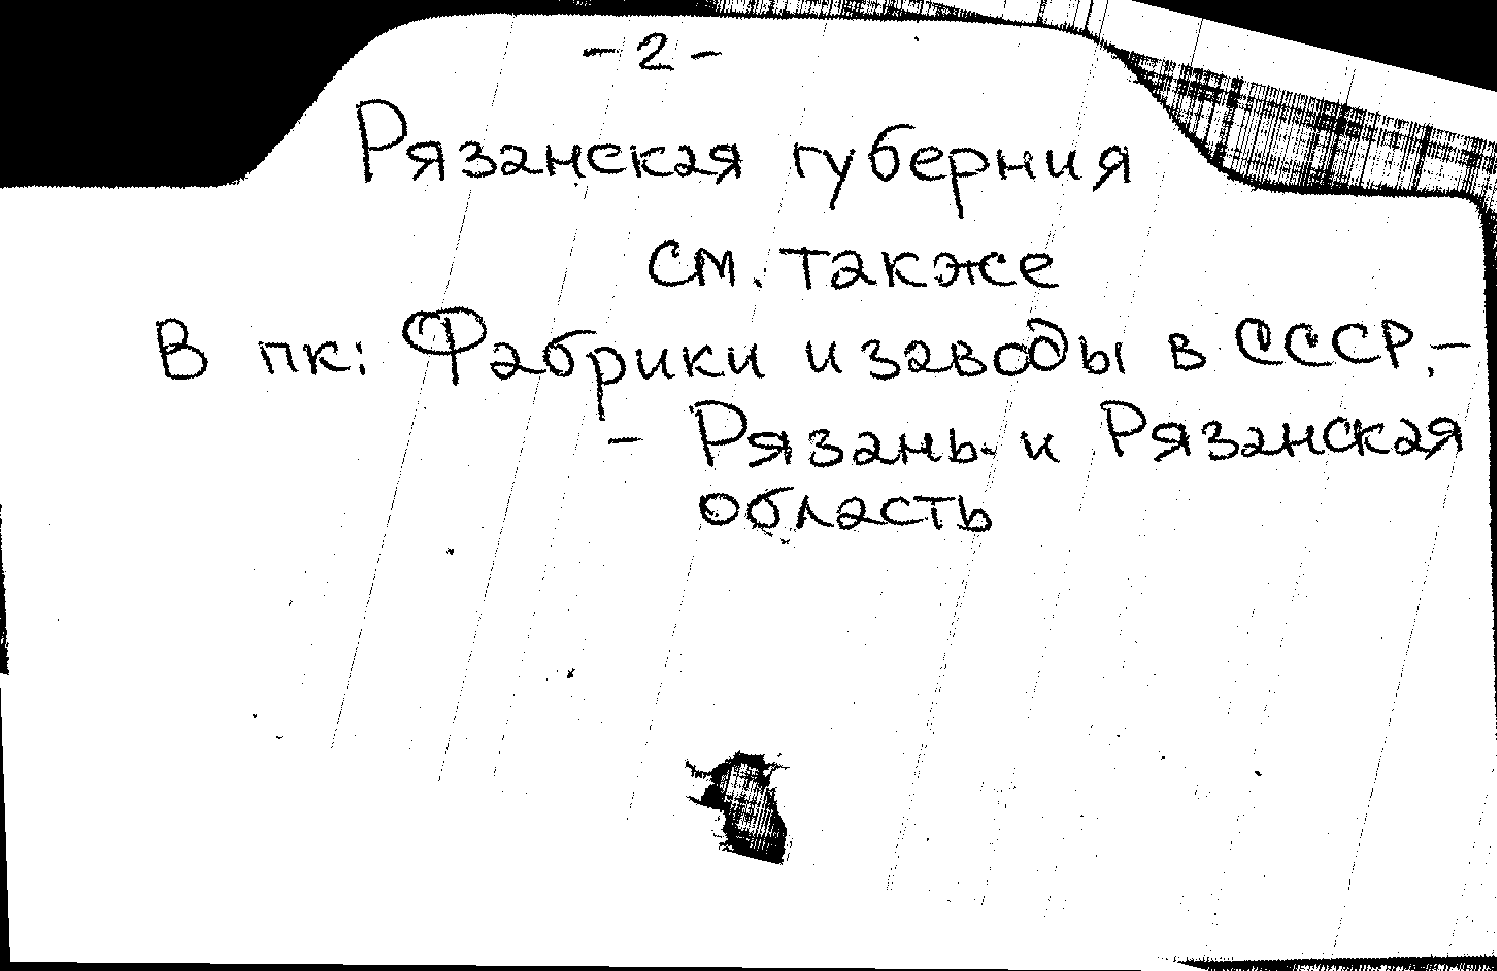 - 2 -
Рязанская губерния
см. также
В пк: Фабрики и заводы в СССР. -
- Рязань и Рязанская
область